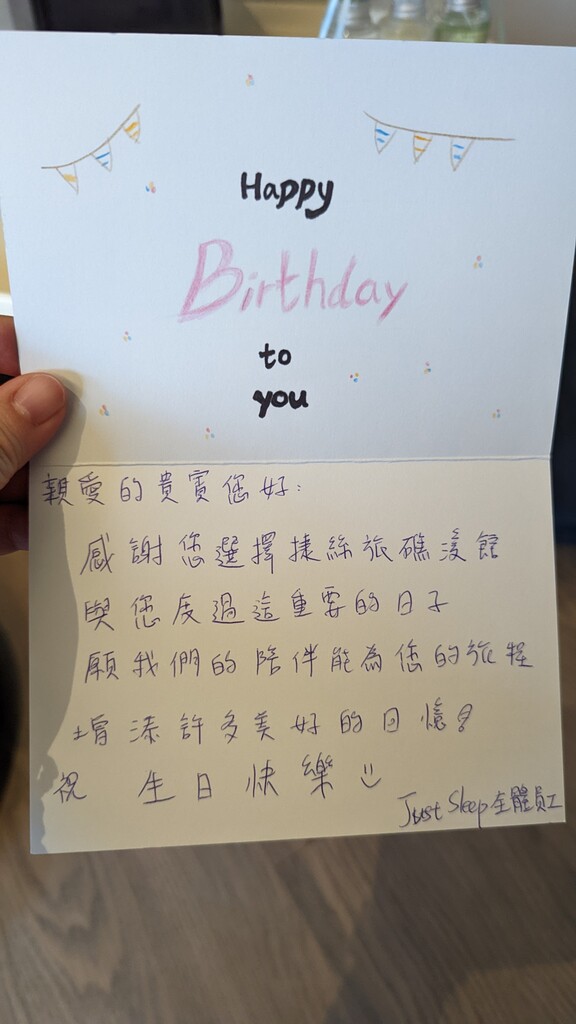 Happy
Birthday
to
you
親愛的貴賓您好:
感謝您選擇捷絲旅礁溪館
與您度過這重要的日子
願我們的陪伴能為您的旅程
增添許多美好的回憶!
祝 生日快樂
Just Sleep 全體員工